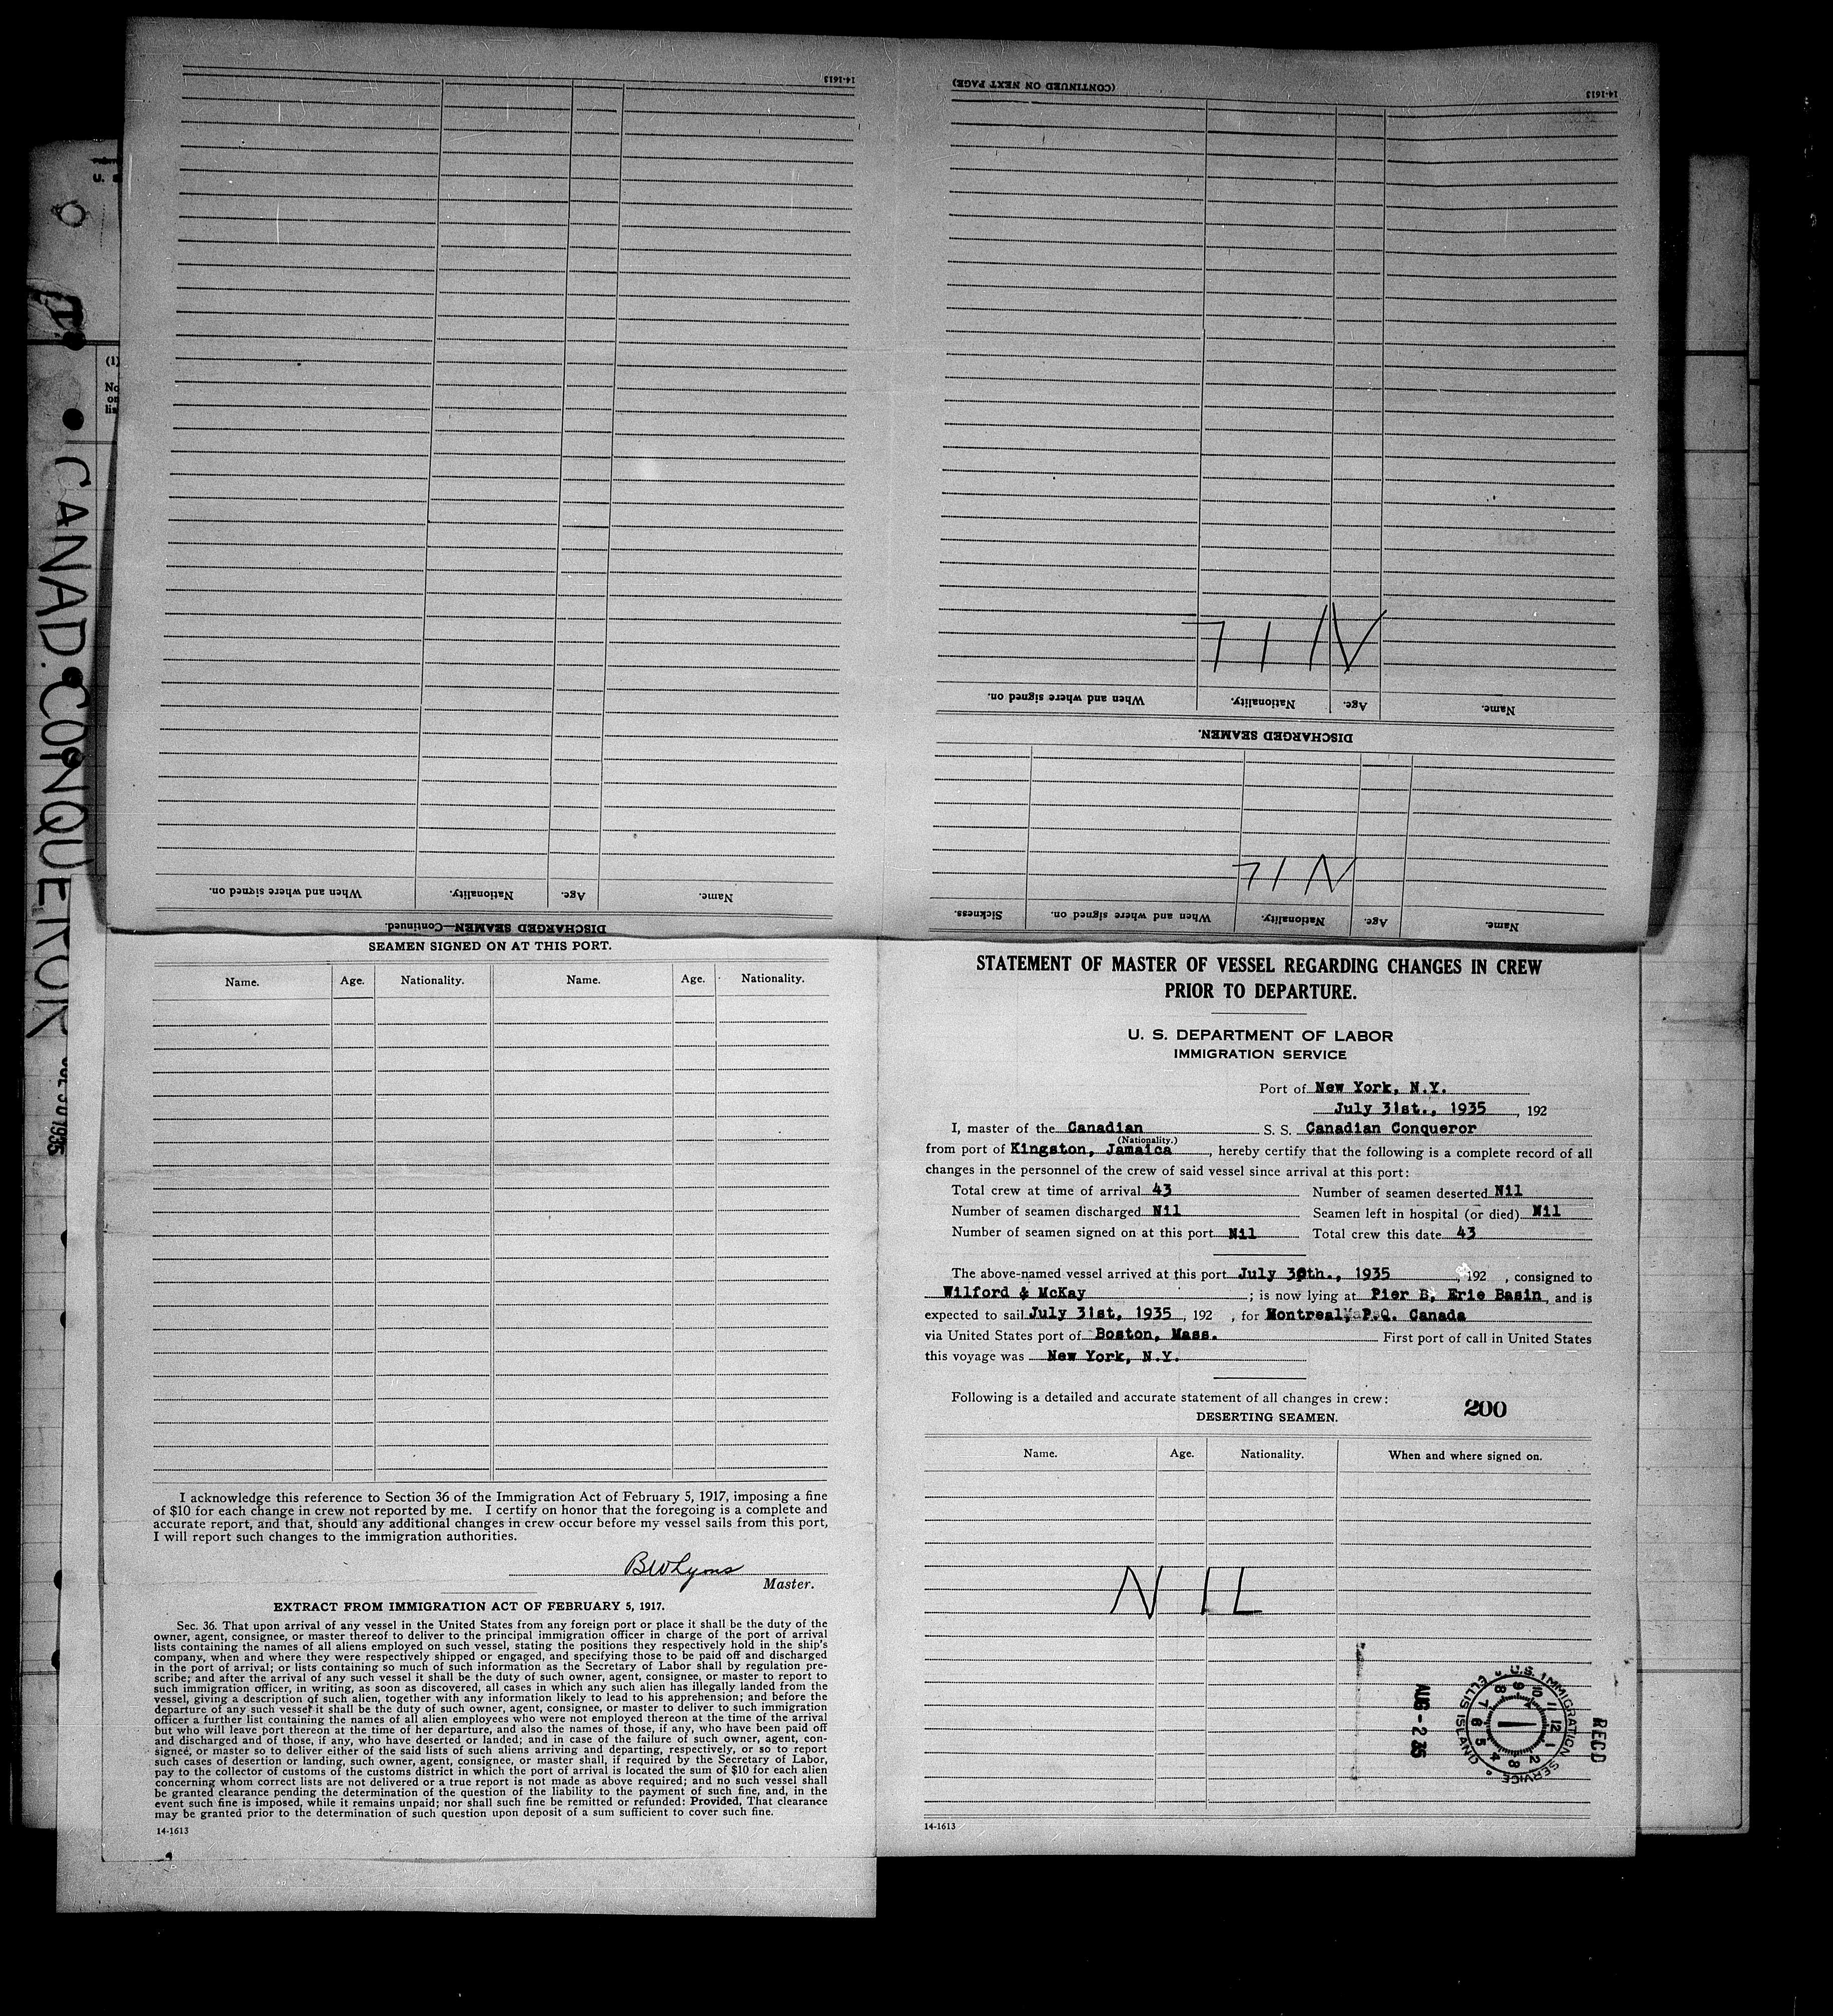 14-1613
When and where signed on.
Nationality.
Age.
Name.
DISCHARGED SEAMEN—Continued.
(CONTINUED ON NEXT PAGE)
14-1613
NIL
When and where signed on.
Nationality.
Age.
Name.
DISCHARGED SEAMEN.
NIL
Sickness.
When and where signed on.
Nationality.
Age.
Name.
(1)
CANAD. CONQUEROR
JUL 30 1935
SEAMEN SIGNED ON AT THIS PORT.
Name. Age. Nationality. Name. Age. Nationality.
I acknowledge this reference to Section 36 of the Immigration Act of February 5, 1917, imposing a fine
of $10 for each change in crew not reported by me. I certify on honor that the foregoing is a complete and
accurate report, and that, should any additional changes in crew occur before my vessel sails from this port,
I will report such changes to the immigration authorities.
BWLyons
Master.
EXTRACT FROM IMMIGRATION ACT OF FEBRUARY 5, 1917.
Sec. 36. That upon arrival of any vessel in the United States from any foreign port or place it shall be the duty of the
owner, agent, consignee, or master thereof to deliver to the principal immigration officer in charge of the port of arrival
lists containing the names of all aliens employed on such vessel, stating the positions they respectively hold in the ship's
company, when and where they were respectively shipped or engaged, and specifying those to be paid off and discharged
in the port of arrival; or lists containing so much of such information as the Secretary of Labor shall by regulation pre-
scribe; and after the arrival of any such vessel it shall be the duty of such owner, agent, consignee, or master to report to
such immigration officer, in writing, as soon as discovered, all cases in which any such alien has illegally landed from the
vessel, giving a description of such alien, together with any information likely to lead to his apprehension; and before the
departure of any such vessel it shall be the duty of such owner, agent, consignee, or master to deliver to such immigration
officer a further list containing the names of all alien employees who were not employed thereon at the time of the arrival
but who will leave port thereon at the time of her departure, and also the names of those, if any, who have been paid off
and discharged and of those, if any, who have deserted or landed; and in case of the failure of such owner, agent, con-
signee, or master so to deliver either of the said lists of such aliens arriving and departing, respectively, or so to report
such cases of desertion or landing, such owner, agent, consignee, or master shall, if required by the Secretary of Labor,
pay to the collector of customs of the customs district in which the port of arrival is located the sum of $10 for each alien
concerning whom correct lists are not delivered or a true report is not made as above required; and no such vessel shall
be granted clearance pending the determination of the question of the liability to the payment of such fine, and, in the
event such fine is imposed, while it remains unpaid; nor shall such fine be remitted or refunded: Provided, That clearance
may be granted prior to the determination of such question upon deposit of a sum sufficient to cover such fine.
14-1613
STATEMENT OF MASTER OF VESSEL REGARDING CHANGES IN CREW
PRIOR TO DEPARTURE.
U. S. DEPARTMENT OF LABOR
IMMIGRATION SERVICE
Port of New York, N.Y.
July 31st., 1935, 192
I, master of the Canadian S. S. Canadian Conqueror
(Nationality.)
from port of Kingston, Jamaica, hereby certify that the following is a complete record of all
changes in the personnel of the crew of said vessel since arrival at this port:
Total crew at time of arrival 43 Number of seamen deserted Nil
Number of seamen discharged Nil Seamen left in hospital (or died) Nil
Number of seamen signed on at this port Nil Total crew this date 43
The above-named vessel arrived at this port July 30th., 1935, 192 , consigned to
Wilford & McKay; is now lying at Pier B, Erie Basin, and is
expected to sail July 31st, 1935, 192 , for Montreal, P.Q. Canada
via United States port of Boston, Mass. First port of call in United States
this voyage was New York, N.Y.
Following is a detailed and accurate statement of all changes in crew:
200
DESERTING SEAMEN.
Name. Age. Nationality. When and where signed on.
NIL
AUG - 2 35
U.S. IMMIGRATION SERVICE ELLIS ISLAND
REC'D
14-1613